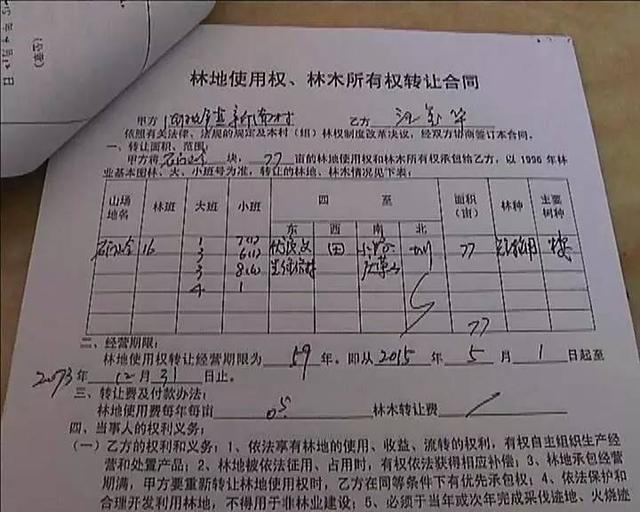 林地使用权、林木所有权转让合同
甲方 乙方
依照有关法律、法规的规定及本村（组）林权制度改革决议，经双方协商签订本合同。
一、转让面积、范围：
甲方将 块，77 亩的林地使用权和林木所有权承包给乙方，以 1996 年林
业基本图林、大、小班号为准，转让的林地、林木情况见下表：
山场地名 林班 大班 小班 四 至 面积（亩） 林种 主要树种
东 西 南 北
16 1 7(1) 田 77
3 6(1)
3 8(6)
4 1
77
二、经营期限：
林地使用权转让经营期限为 59 年。即从 2015 年 5 月 1 日起至
2073 年 12 月 31 日止。
三、转让费及付款办法：
林地使用费每年每亩 林木转让费
四、当事人的权利义务：
（一）乙方的权利和义务：1、依法享有林地的使用、收益、流转的权利，有权自主组织生产经
营和处置产品；2、林地被依法征用、占用时，有权依法获得相应补偿；3、林地承包经营
期满，甲方要重新转让林地使用权时，乙方在同等条件下有优先承包权；4、依法保护和
合理开发利用林地，不得用于非林业建设；5、必须于当年或次年完成采伐迹地、火烧迹